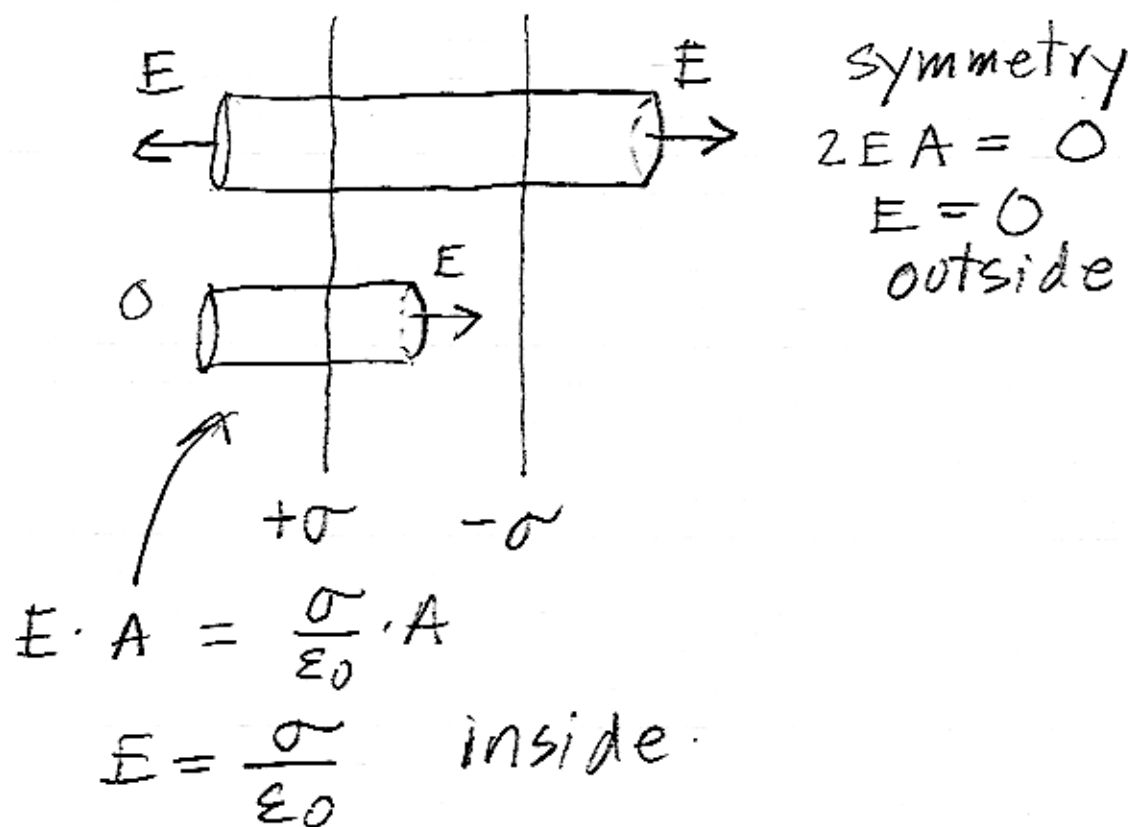 E
E
symmetry
2EA = 0
E = 0
outside
0
E
+σ
-σ
E · A = σ/ε0 · A
E = σ/ε0 inside.